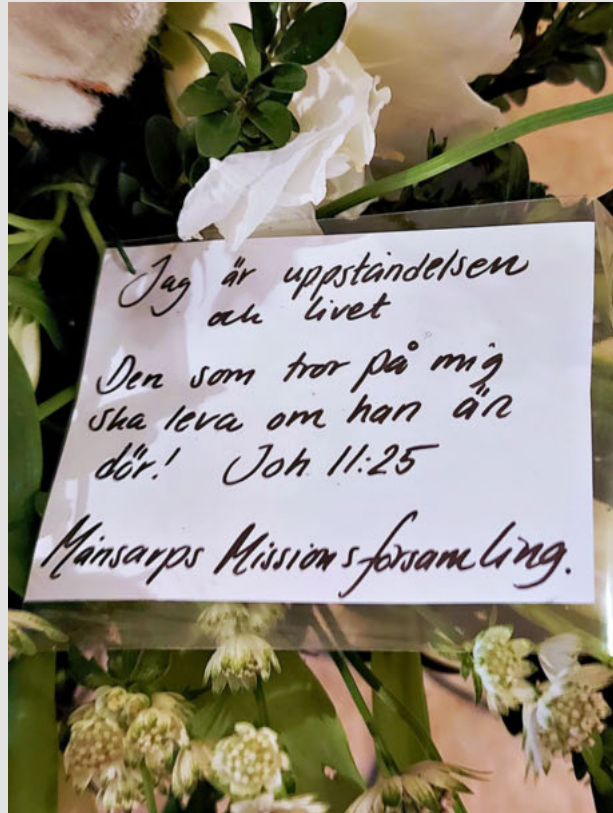 Jag är uppståndelsen
och livet
Den som tror på mig
ska leva om han än
dör! Joh 11:25
Månsarps Missionsförsamling.